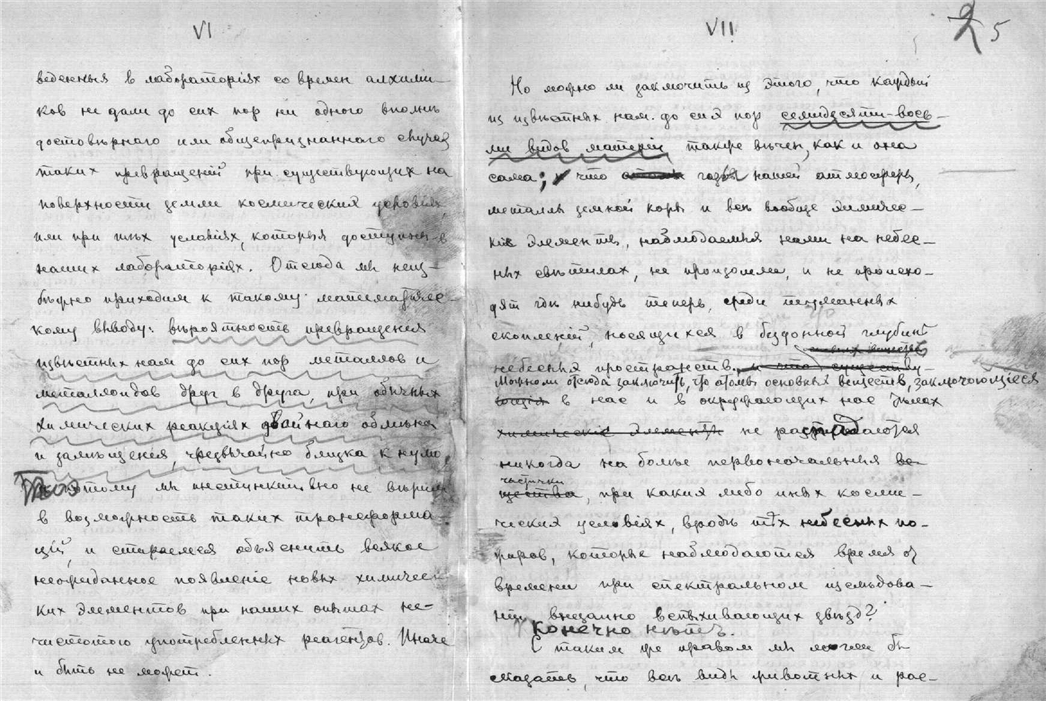 VI
веденныя в лабораторіях со времен алхими-
ков не дали до сих пор ни одного вполнѣ
достовѣрнаго или общепризнаннаго случая
таких превращеній при существующих на
поверхности земли космических условіях,
или при тѣх условіях, которыя доступны в
наших лабораторіях. Отсюда мы неиз-
бѣжно приходим к такому математичес-
кому выводу: вѣроятность превращенія
извѣстных нам до сих пор металлов и
металлоидов друг в друга, при обычных
химических реакціях двойного обмѣна
и замѣщенія, чрезвычайно близка к нулю,
потому мы инстинктивно не вѣрим
в возможность таких трансформа-
цій, и стараемся объяснить всякое
неожиданное появленіе новых химичес-
ких элементов при наших опытах не-
чистотою употребленных реагентов. Иначе
и быть не может.
VII
25
Но можно ли заключить из этого, что каждый
из извѣстных нам до сих пор семидесяти-вось-
ми видов матеріи также вѣчен, как и она
сама; что газы нашей атмосферы,
металлы земной коры и всѣ вообще химичес-
кіе элементы, наблюдаемые нами на небес-
ных свѣтилах, не произошли, и не происхо-
дят гдѣ нибудь теперь, среди туманных
скопленій, носящихся в бездонной глубинѣ
небесных пространств,
Можно ли отсюда заключить, что атомы основных веществ, заключающіеся
в нас и в окружающих нас тѣлах
химическіе элементы не распадаются
никогда на болѣе первоначальныя ве-
частички
щества, при каких либо иных косми-
ческих условіях, вродѣ тѣх небесных по-
жаров, которые наблюдаются время от
времени при спектральном изслѣдова-
ніи внезапно вспыхивающих звѣзд?
Конечно нѣтъ.
С таким же правом мы могли бы
сказать, что всѣ виды животных и рас-